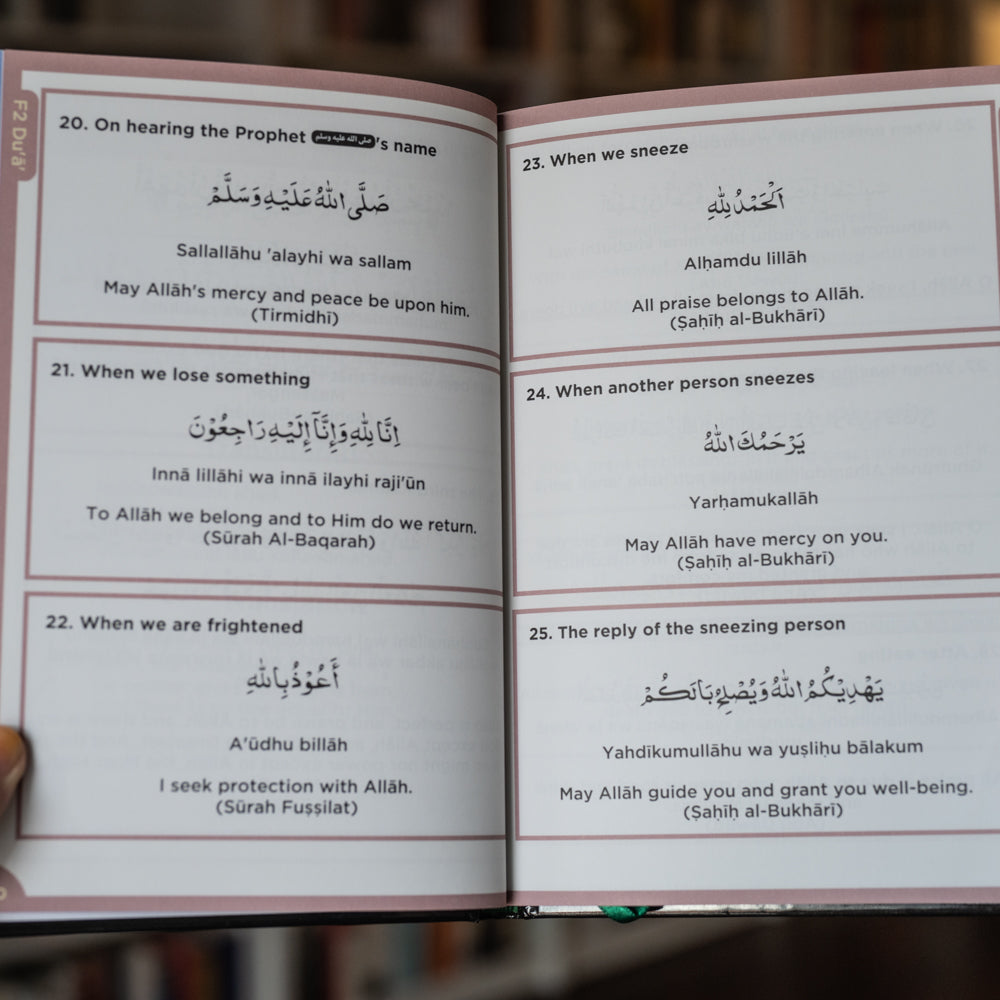 F2 Du'ā'
20. On hearing the Prophet صلى الله عليه وسلم's name
صَلَّى اللهُ عَلَيْهِ وَسَلَّمْ
Sallallāhu 'alayhi wa sallam
May Allāh's mercy and peace be upon him.
(Tirmidhī)
21. When we lose something
اِنَّا لِلّٰهِ وَإِنَّآ إِلَيْهِ رَاجِعُوْنَ
Innā lillāhi wa innā ilayhi raji'ūn
To Allāh we belong and to Him do we return.
(Sūrah Al-Baqarah)
22. When we are frightened
أَعُوْذُ بِاللّٰهِ
A'ūdhu billāh
I seek protection with Allāh.
(Sūrah Fuṣṣilat)
23. When we sneeze
اَلْحَمْدُ لِلّٰهِ
Alḥamdu lillāh
All praise belongs to Allāh.
(Ṣaḥīḥ al-Bukhārī)
24. When another person sneezes
يَرْحَمُكَ اللهُ
Yarḥamukallāh
May Allāh have mercy on you.
(Ṣaḥīḥ al-Bukhārī)
25. The reply of the sneezing person
يَهْدِيْكُمُ اللهُ وَيُصْلِحُ بَالَكُمْ
Yahdīkumullāhu wa yuṣliḥu bālakum
May Allāh guide you and grant you well-being.
(Ṣaḥīḥ al-Bukhārī)